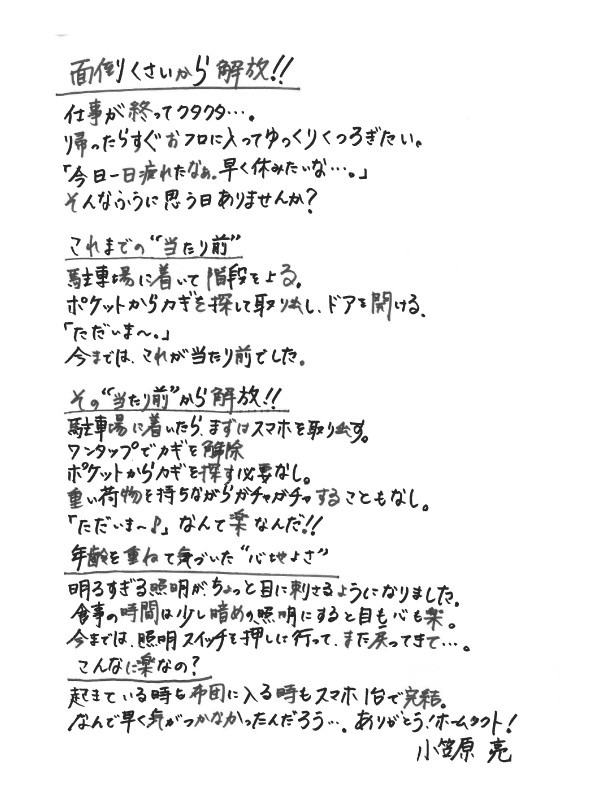 面倒くさいから解放!!
仕事が終ってクタクタ…。
帰ったらすぐおフロに入ってゆっくりくつろぎたい。
「今日一日疲れたなぁ。早く休みたいな…。」
そんなふうに思う日ありませんか?
これまでの"当たり前"
駐車場に着いて階段をよる。
ポケットからカギを探して取り出し、ドアを開ける。
「ただいま〜。」
今までは、これが当たり前でした。
その"当たり前"から解放!!
駐車場に着いたら、まずはスマホを取り出す。
ワンタップでカギを解除
ポケットからカギを探す必要なし。
重い荷物を持ちながらガチャガチャすることもなし。
「ただいま〜♪」なんて楽なんだ!!
年齢を重ねて気づいた"心地よさ"
明るすぎる照明が、ちょっと目に刺さるようになりました。
食事の時間は少し暗めの照明にすると目も心も楽。
今までは、照明スイッチを押しに行って、また戻ってきて…。
こんなに楽なの?
起きている時も布団に入る時もスマホ1台で完結。
なんで早く気がつかなかったんだろう…。ありがとう!ホームタクト!
小笠原 亮